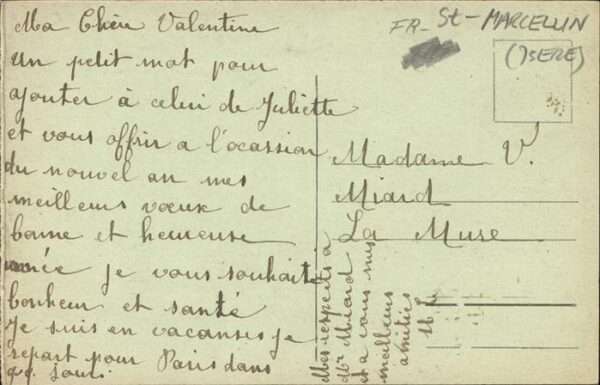 Ma Chère Valentine
un petit mot pour
ajouter à celui de Juliette
et vous offrir a l'ocassion
du nouvel an mes
meilleurs vœux de
bonne et heureuse
année je vous souhaite
bonheur et santé
Je suis en vacanses je
repart pour Paris dans
FR- St- MARCELLIN
(ISERE)
Madame V.
Miard
La Muse
Mes respects à
Mr Miard
et a vous mes
meilleurs
amitiés